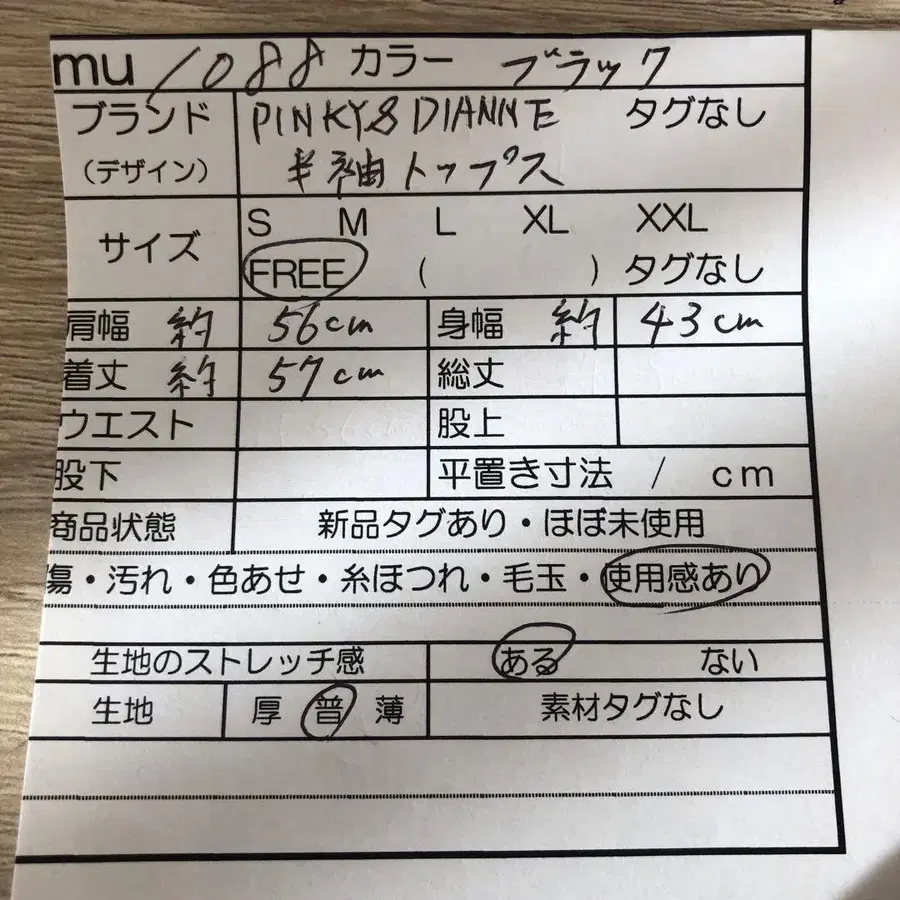 mu 1088 カラー ブラック
ブランド PINKY&DIANNE タグなし
(デザイン) 半袖トップス
サイズ S M L XL XXL
FREE ( ) タグなし
肩幅 約 56cm 身幅 約 43cm
着丈 約 57cm 総丈
ウエスト 股上
股下 平置き寸法 / cm
商品状態 新品タグあり・ほぼ未使用
傷・汚れ・色あせ・糸ほつれ・毛玉・使用感あり
生地のストレッチ感 ある ない
生地 厚 普 薄 素材タグなし